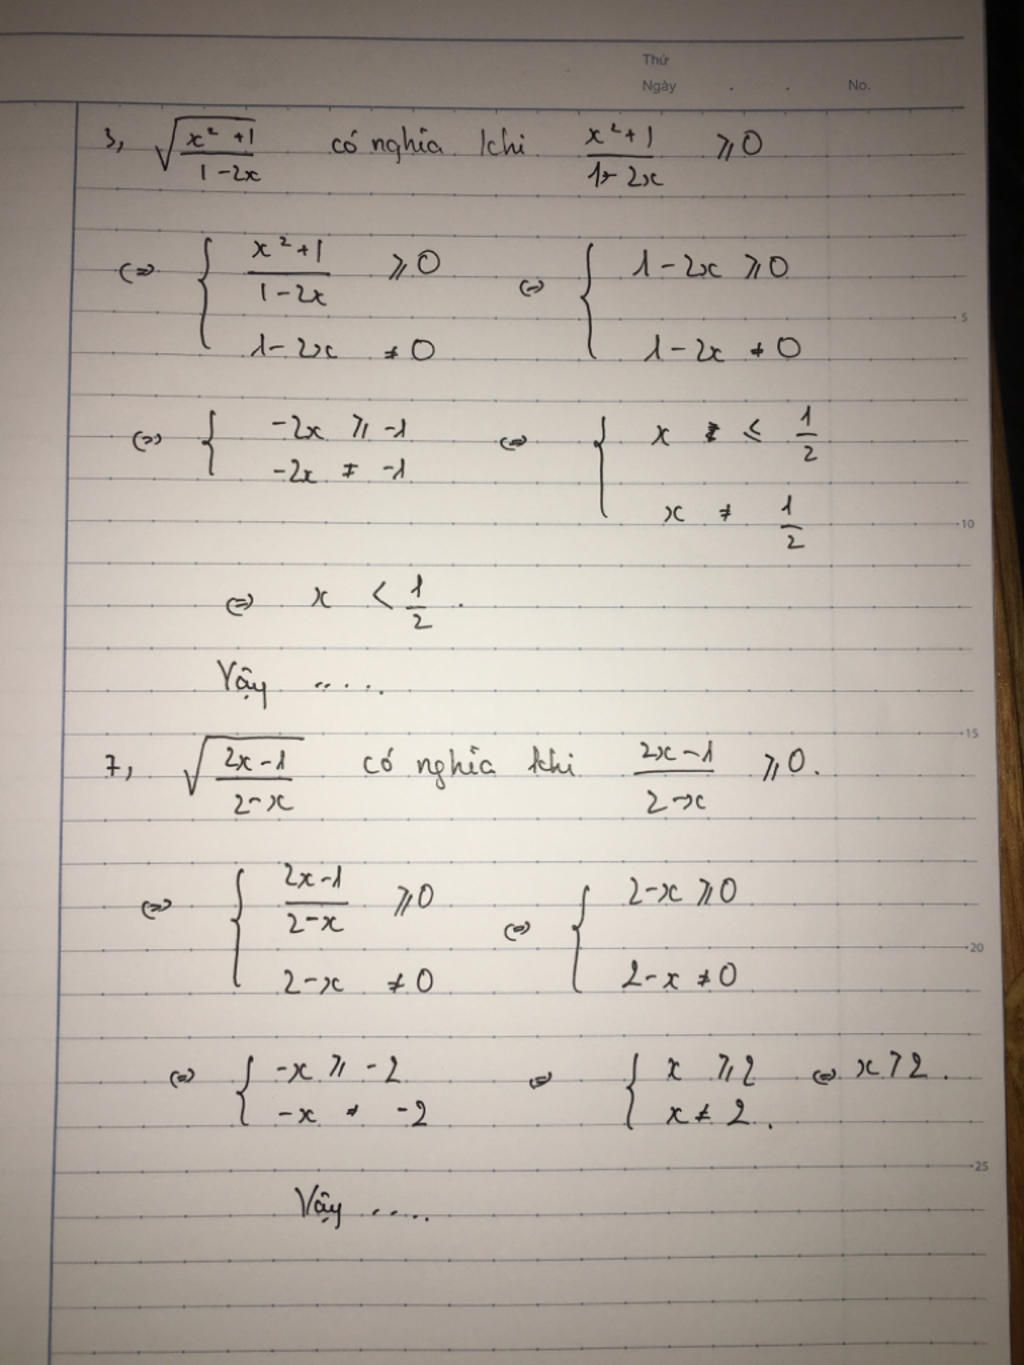 Thứ
Ngày . . No.
3, √((x² + 1)/(1 - 2x)) có nghĩa khi (x² + 1)/(1 - 2x) ≥ 0
⇔ { (x² + 1)/(1 - 2x) ≥ 0 ⇔ { 1 - 2x ≥ 0
5
1 - 2x ≠ 0 1 - 2x ≠ 0
⇔ { -2x ≥ -1 ⇔ { x ≤ 1/2
-2x ≠ -1
x ≠ 1/2
10
⇔ x < 1/2 .
Vậy .....
15
7, √((2x - 1)/(2 - x)) có nghĩa khi (2x - 1)/(2 - x) ≥ 0.
⇔ { (2x - 1)/(2 - x) ≥ 0 ⇔ { 2 - x ≥ 0
20
2 - x ≠ 0 2 - x ≠ 0
⇔ { -x ≥ -2 ⇔ { x ≥ 2 ⇔ x > 2 .
-x ≠ -2 x ≠ 2 .
25
Vậy .....